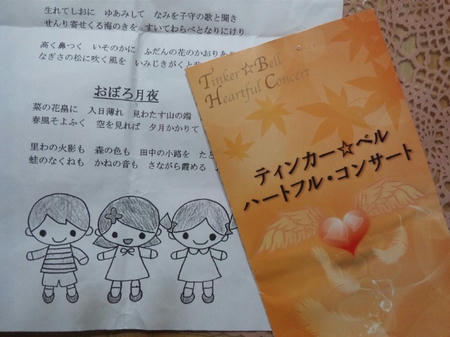 生れてしおに ゆあみして なみを子守の歌と聞き
せんり寄せくる海のきを すいてわらべとなりにけり
高く鼻つく いそのかに ふだんの花のかおりあ
なぎさの松に吹く風を いみじきがくと
おぼろ月夜
菜の花畠に 入日薄れ 見わたす山の端
春風そよふく 空を見れば 夕月かかりて
里わの火影も 森の色も 田中の小路を たど
蛙のなくねも かねの音も さながら霞める
Tinker☆Bell
Heartful Concert
ティンカー☆ベル
ハートフル・コンサート